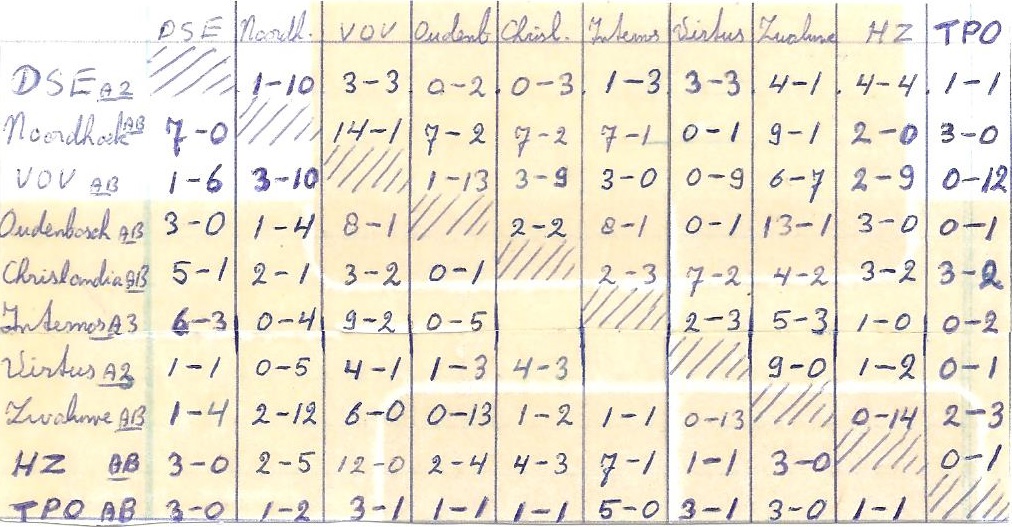 DSE Noordh. VOV Oudenb Chrisl. Internos Virtus Zwaluwe HZ TPO
DSE A2 1-10 3-3 0-2 0-3 1-3 3-3 4-1 4-4 1-1
Noordhoek AB 7-0 14-1 7-2 7-2 7-1 0-1 9-1 2-0 3-0
VOV AB 1-6 3-10 1-13 3-9 3-0 0-9 6-7 2-9 0-12
Oudenbosch AB 3-0 1-4 8-1 2-2 8-1 0-1 13-1 3-0 0-1
Chrislandia AB 5-1 2-1 3-2 0-1 2-3 7-2 4-2 3-2 3-2
Internos A3 6-3 0-4 9-2 0-5 2-3 5-3 1-0 0-2
Virtus A2 1-1 0-5 4-1 1-3 4-3 9-0 1-2 0-1
Zwaluwe AB 1-4 2-12 6-0 0-13 1-2 1-1 0-13 0-14 2-3
HZ AB 3-0 2-5 12-0 2-4 4-3 7-1 1-1 3-0 0-1
TPO AB 3-0 1-2 3-1 1-1 1-1 5-0 3-1 3-0 1-1